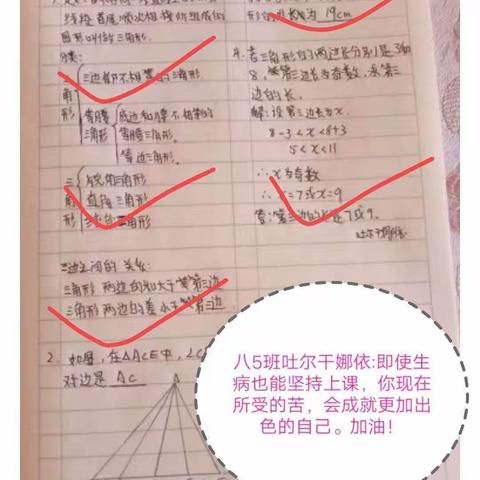 线段首尾顺次相接所组成的
图形叫做三角形.
分类:
三边都不相等的三角形.
三角形
等腰三角形
底边和腰不相等的
等腰三角形.
等边三角形.
三角形
锐角三角形
直角三角形
钝角三角形
三边之间的关系:
三角形两边的和大于第三边
三角形两边的差小于第三边.
2. 如图, 在△ACE中, ∠C
对边是 AC
A
形的周长为 19cm
4. 若三角形的两边长分别是3和
8, 第三边长为奇数, 求第三
边的长.
解: 设第三边长为x.
8-3<x<8+3
5<x<11
∴x为奇数
∴x=7或x=9
答: 第三边的长是7或9.
吐尔干娜依
八5班吐尔干娜依:即使生
病也能坚持上课，你现在
所受的苦，会成就更加出
色的自己。加油！